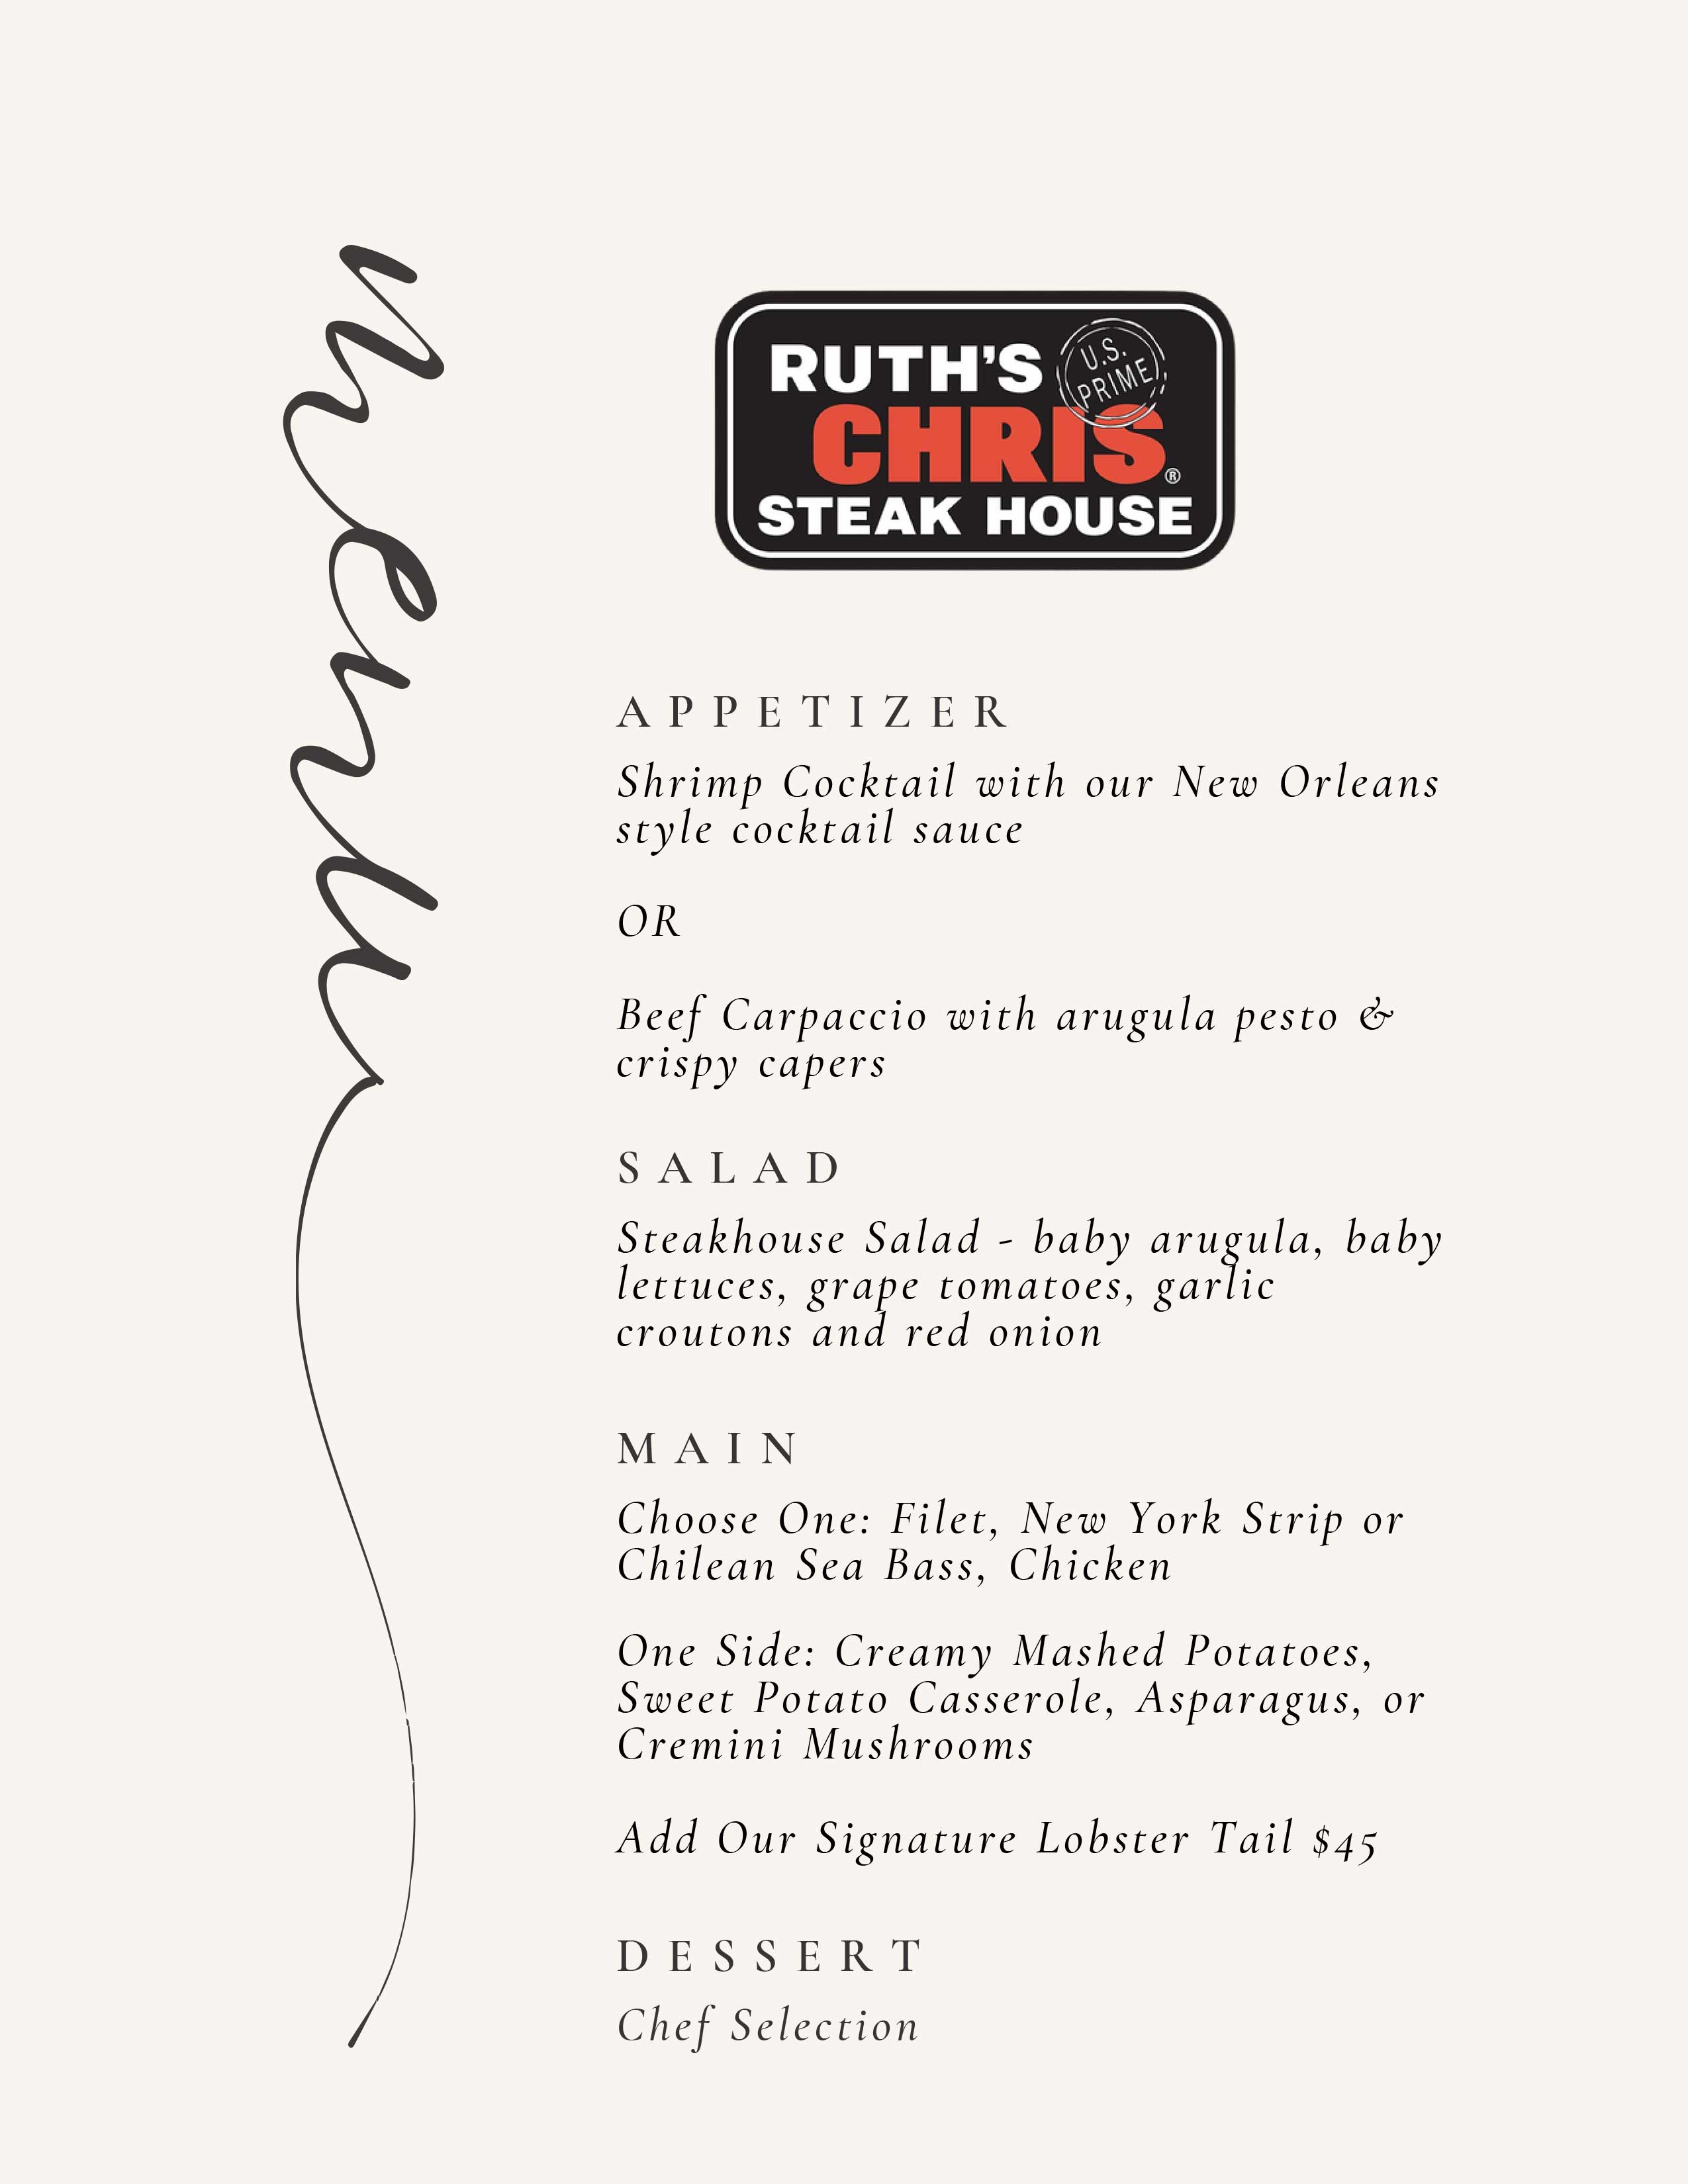 menu
RUTH'S
U.S.
PRIME
CHRIS®
STEAK HOUSE
APPETIZER
Shrimp Cocktail with our New Orleans
style cocktail sauce
OR
Beef Carpaccio with arugula pesto &
crispy capers
SALAD
Steakhouse Salad - baby arugula, baby
lettuces, grape tomatoes, garlic
croutons and red onion
MAIN
Choose One: Filet, New York Strip or
Chilean Sea Bass, Chicken
One Side: Creamy Mashed Potatoes,
Sweet Potato Casserole, Asparagus, or
Cremini Mushrooms
Add Our Signature Lobster Tail $45
DESSERT
Chef Selection